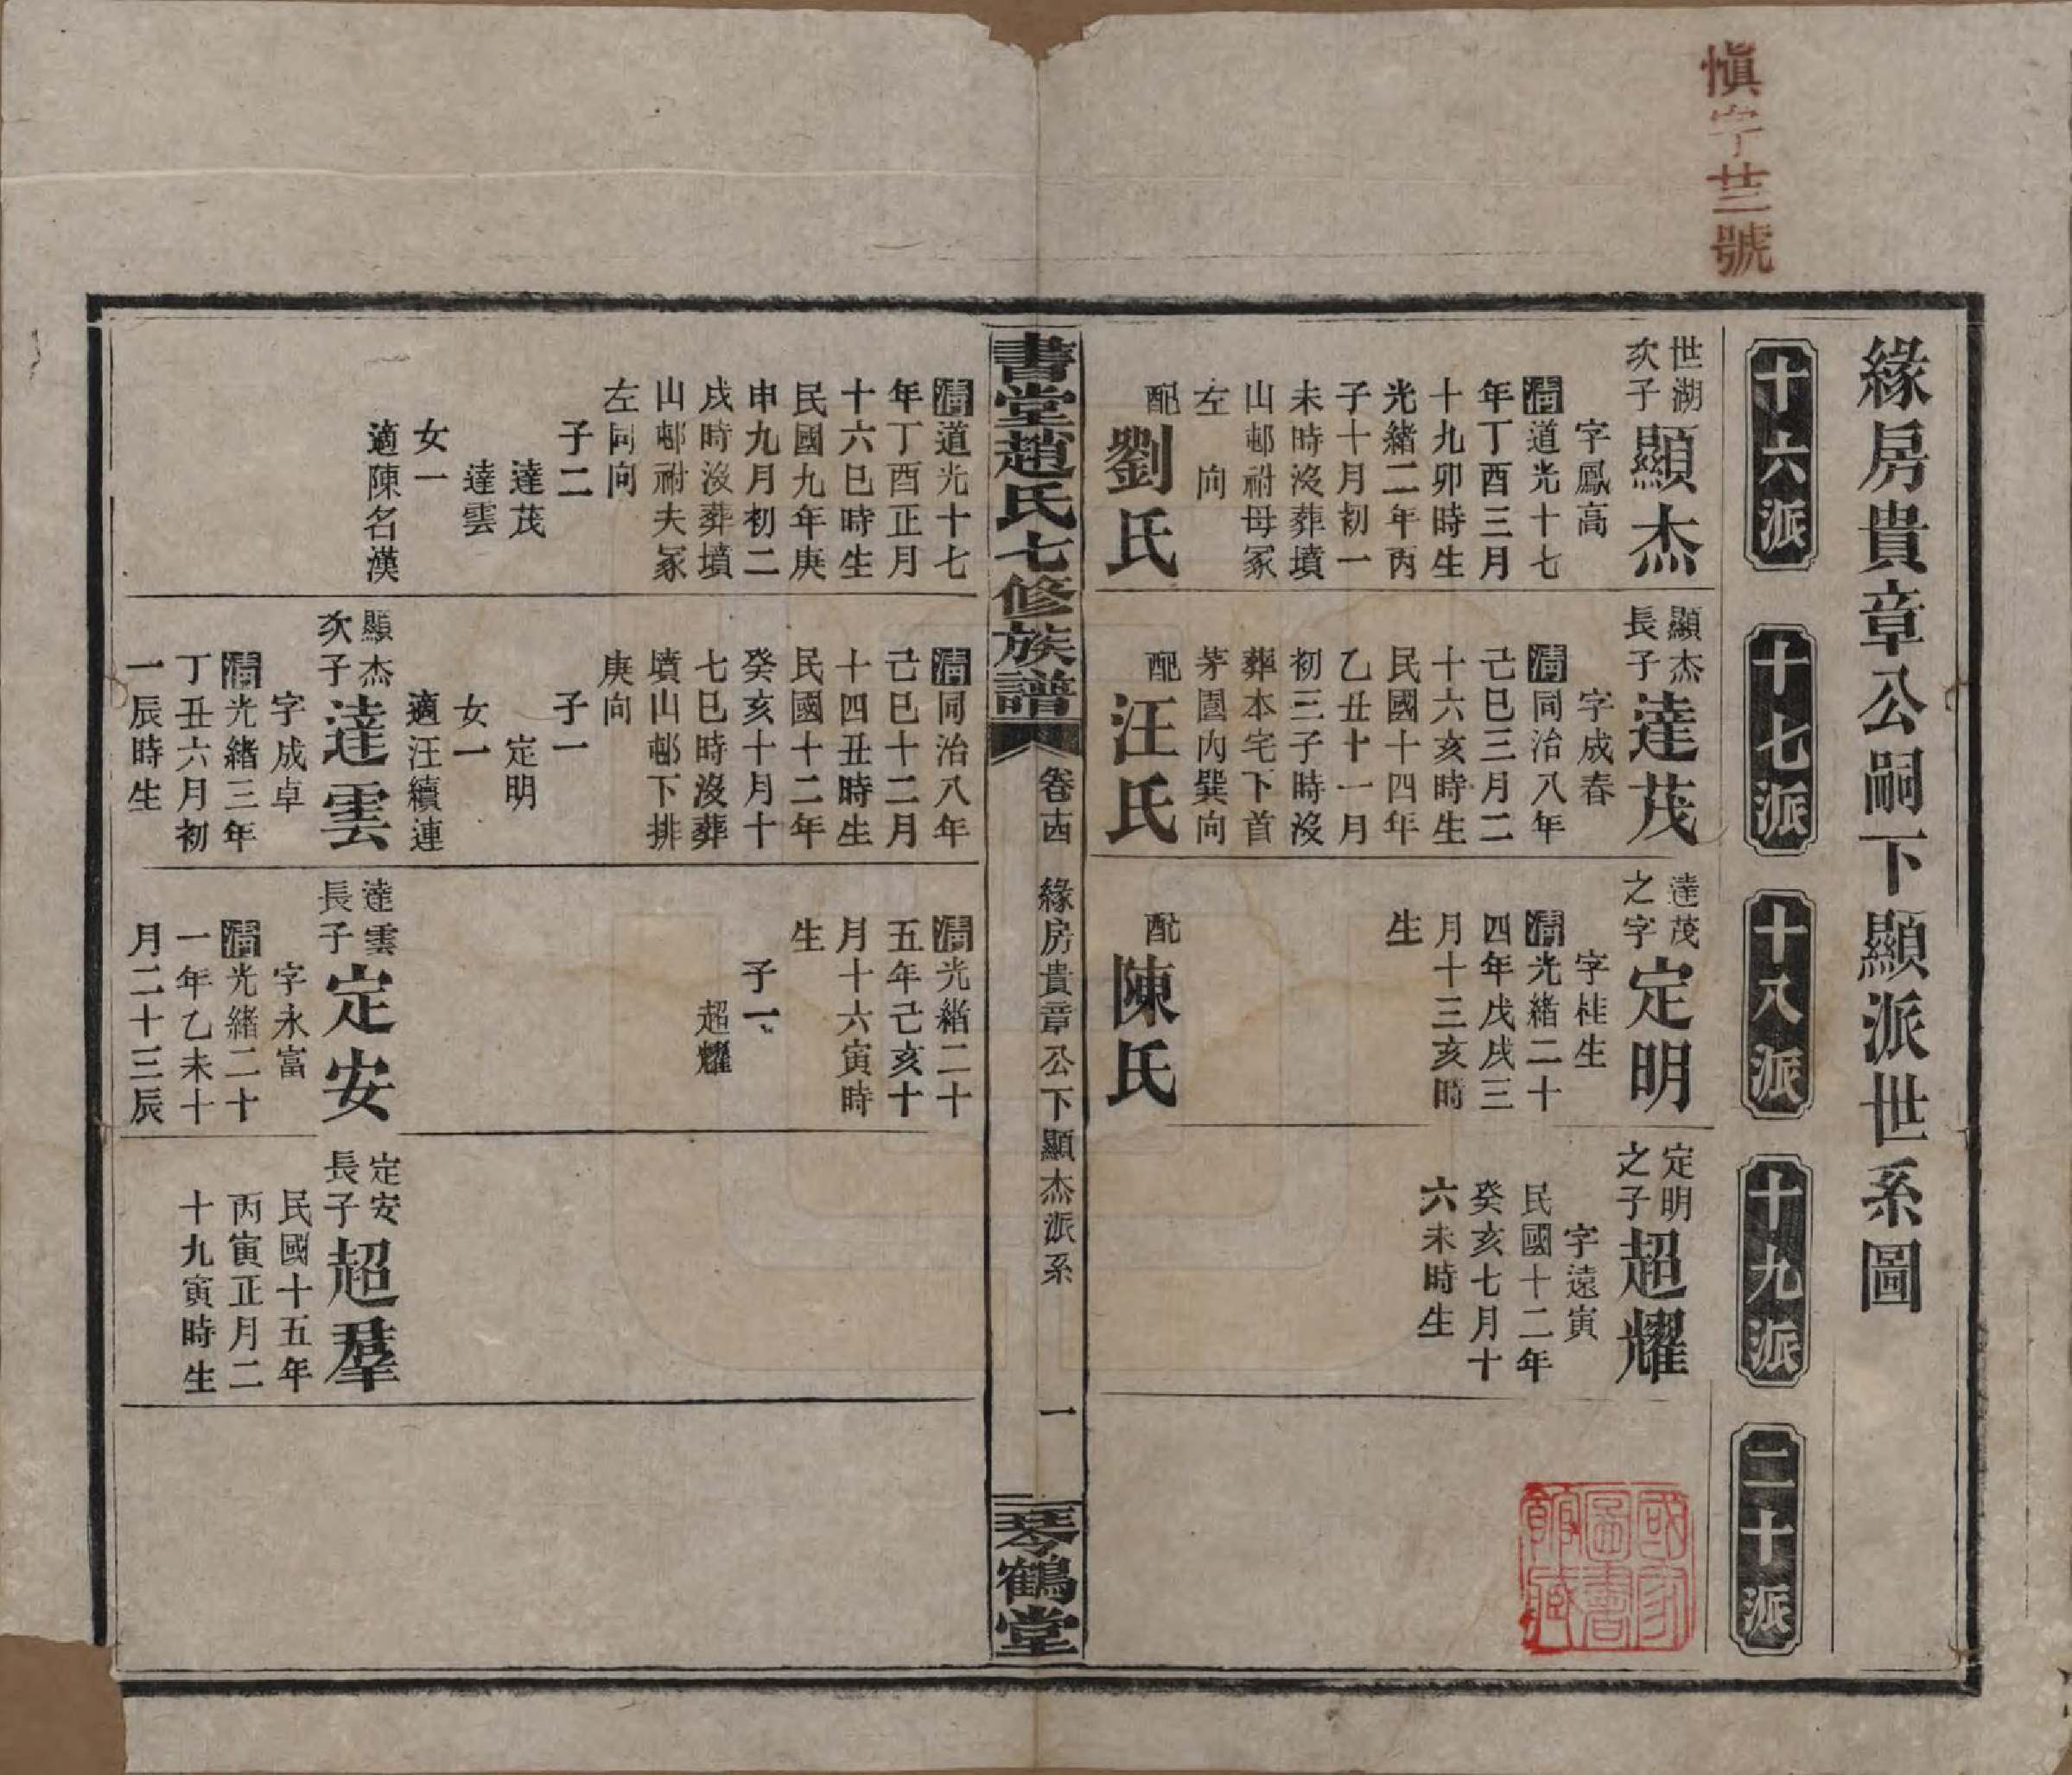 慎字廿三號
緣房貴章公嗣下顯派世系圖
十六派
十七派
十八派
十九派
二十派
世湖
次子
顯杰
字鳳高
清道光十七
年丁酉三月
十九卯時生
光緒二年丙
子十月初一
未時沒葬墳
山邨祔母冢
左向
配
劉氏
顯杰
長子
達茂
字成春
清同治八年
己巳三月二
十六亥時生
民國十四年
乙丑十一月
初三子時沒
葬本宅下首
茅園內巽向
配
汪氏
達茂
之字
定明
字桂生
清光緒二十
四年戊戌三
月十三亥時
生
配
陳氏
定明
之子
超耀
字遠寅
民國十二年
癸亥七月十
六未時生
國家圖書館藏
書堂趙氏七修族譜
卷十四
緣房貴章公下顯杰派系
一
琴鶴堂
清道光十七
年丁酉正月
十六巳時生
民國九年庚
申九月初二
戌時沒葬墳
山邨祔夫冢
左同向
子二
達茂
達雲
女一
適陳名漢
清同治八年
己巳十二月
十四丑時生
民國十二年
癸亥十月十
七巳時沒葬
墳山邨下排
庚向
子一
定明
女一
適汪續連
顯杰
次子
達雲
字成卓
清光緒三年
丁丑六月初
一辰時生
清光緒二十
五年己亥十
月十六寅時
生
子一
超耀
達雲
長子
定安
字永富
清光緒二十
一年乙未十
月二十三辰
定安
長子
超羣
民國十五年
丙寅正月二
十九寅時生